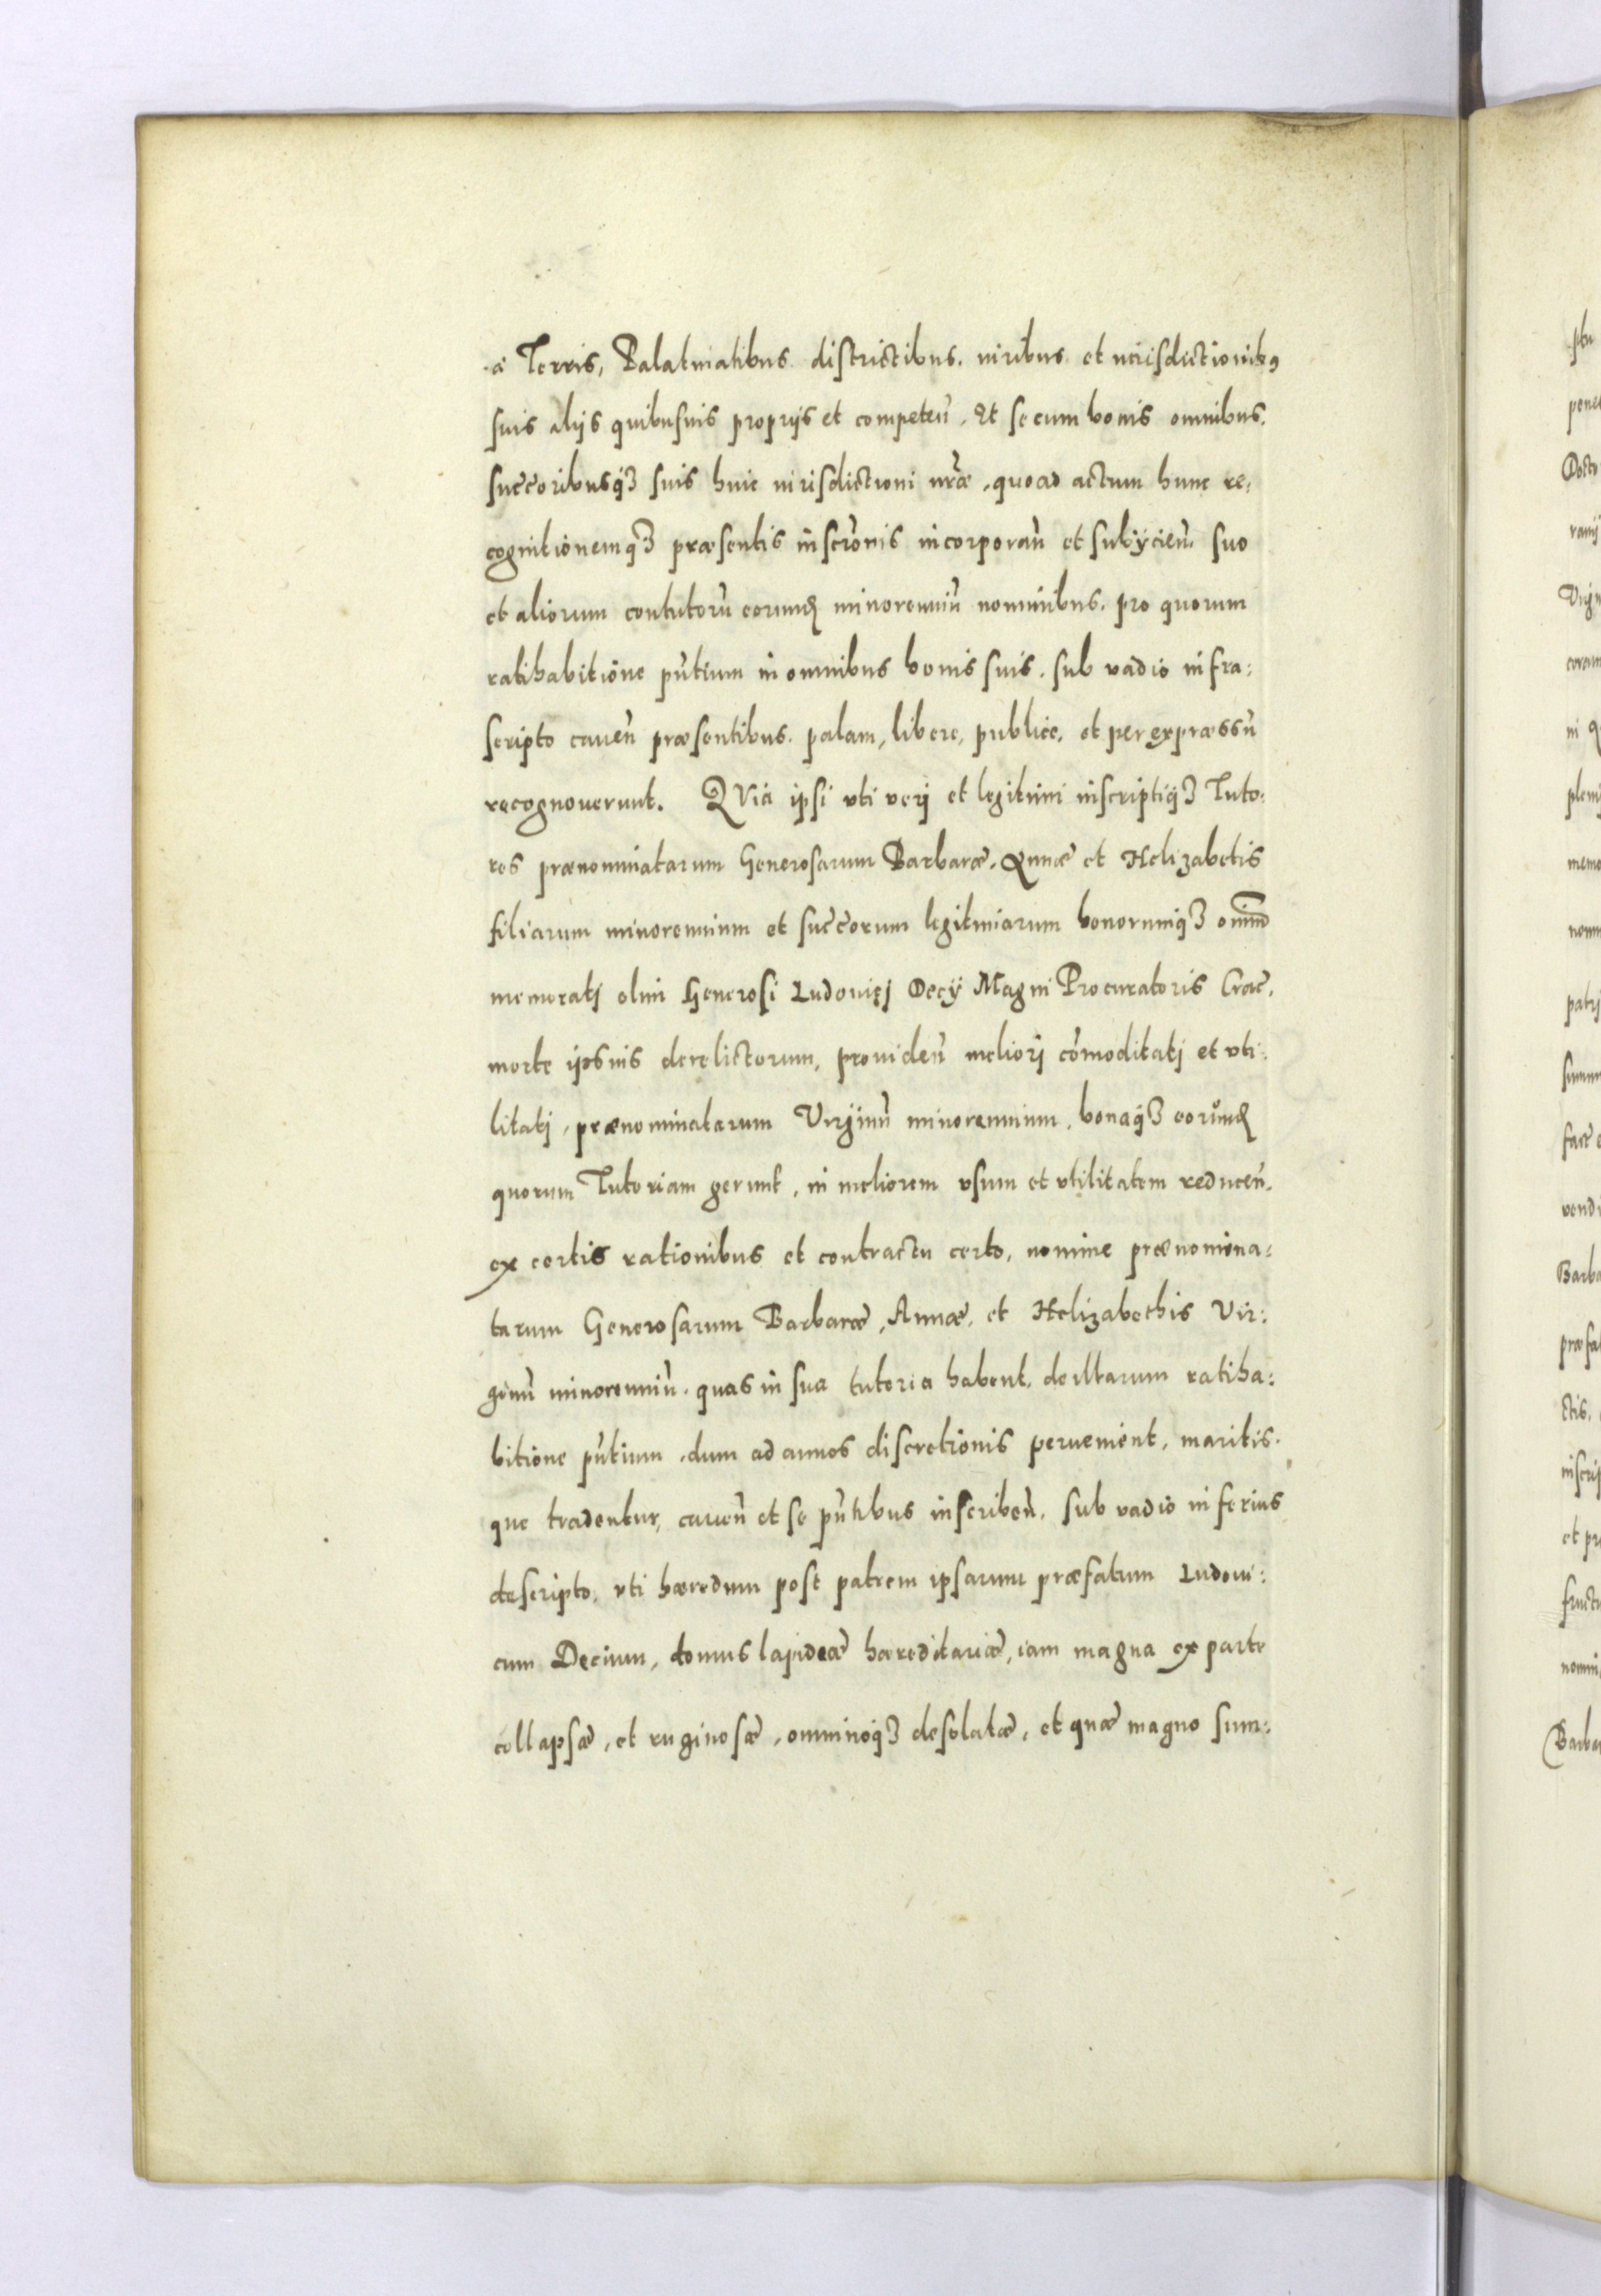 à Terris, Palatinatibus districtibus. iuribus et iurisdictionibus
suis alijs quibusuis proprijs et competeñ. Et se cum bonis omnibus.
succoribusq3 suis huic iurisdictioni nrãe, quoad actum hunc re:
cognitionemq3 præsentis inscrõnis incorporañ et subijcieñ. suo
et aliorum contutorũ eorund minorenniũ nominibus. pro quorum
ratihabitione pñtium in omnibus bonis suis. sub vadio infra:
scripto caueñ præsentibus. palam, libere, publice, et per expræssũ
recognouerunt. QVia ipsi vti verj et legitimi inscriptiq3 Tuto:
res prænominatarum Generosarum Barbaræ, Annæ et Helizabetis
filiarum minorennium et succorum legitimarum bonorumq3 omniũ
memoratj olim Generosi Ludouicj Decÿ Magni Procuratoris Crac.
morte ipsius derelictorum, prouideñ meliorj cõmoditatj et vti:
litatj, prænominatarum Virginũ minorennium, bonaq3 eorund
quorum Tutoriam gerunt, in meliorem vsum et vtilitatem reduceñ.
ex certis rationibus et contractu certo, nomine prænomina:
tarum Generosarum Barbaræ, Annæ, et Helizabethis Vir:
ginũ minorenniũ. quas in sua tutoria habent, de illarum ratiha:
bitione pñtium, dum ad annos discretionis peruenient, maritis.
que tradentur, caueñ et se pñtibus inscribeñ. sub vadio inferius
descripto, vti hæredum post patrem ipsarum præfatum Ludoui:
cum Decium, domus lapideæ hæreditariæ, iam magna ex parte
collapsæ, et ruginosæ, omninoq3 desolatæ, et quæ magno sum: